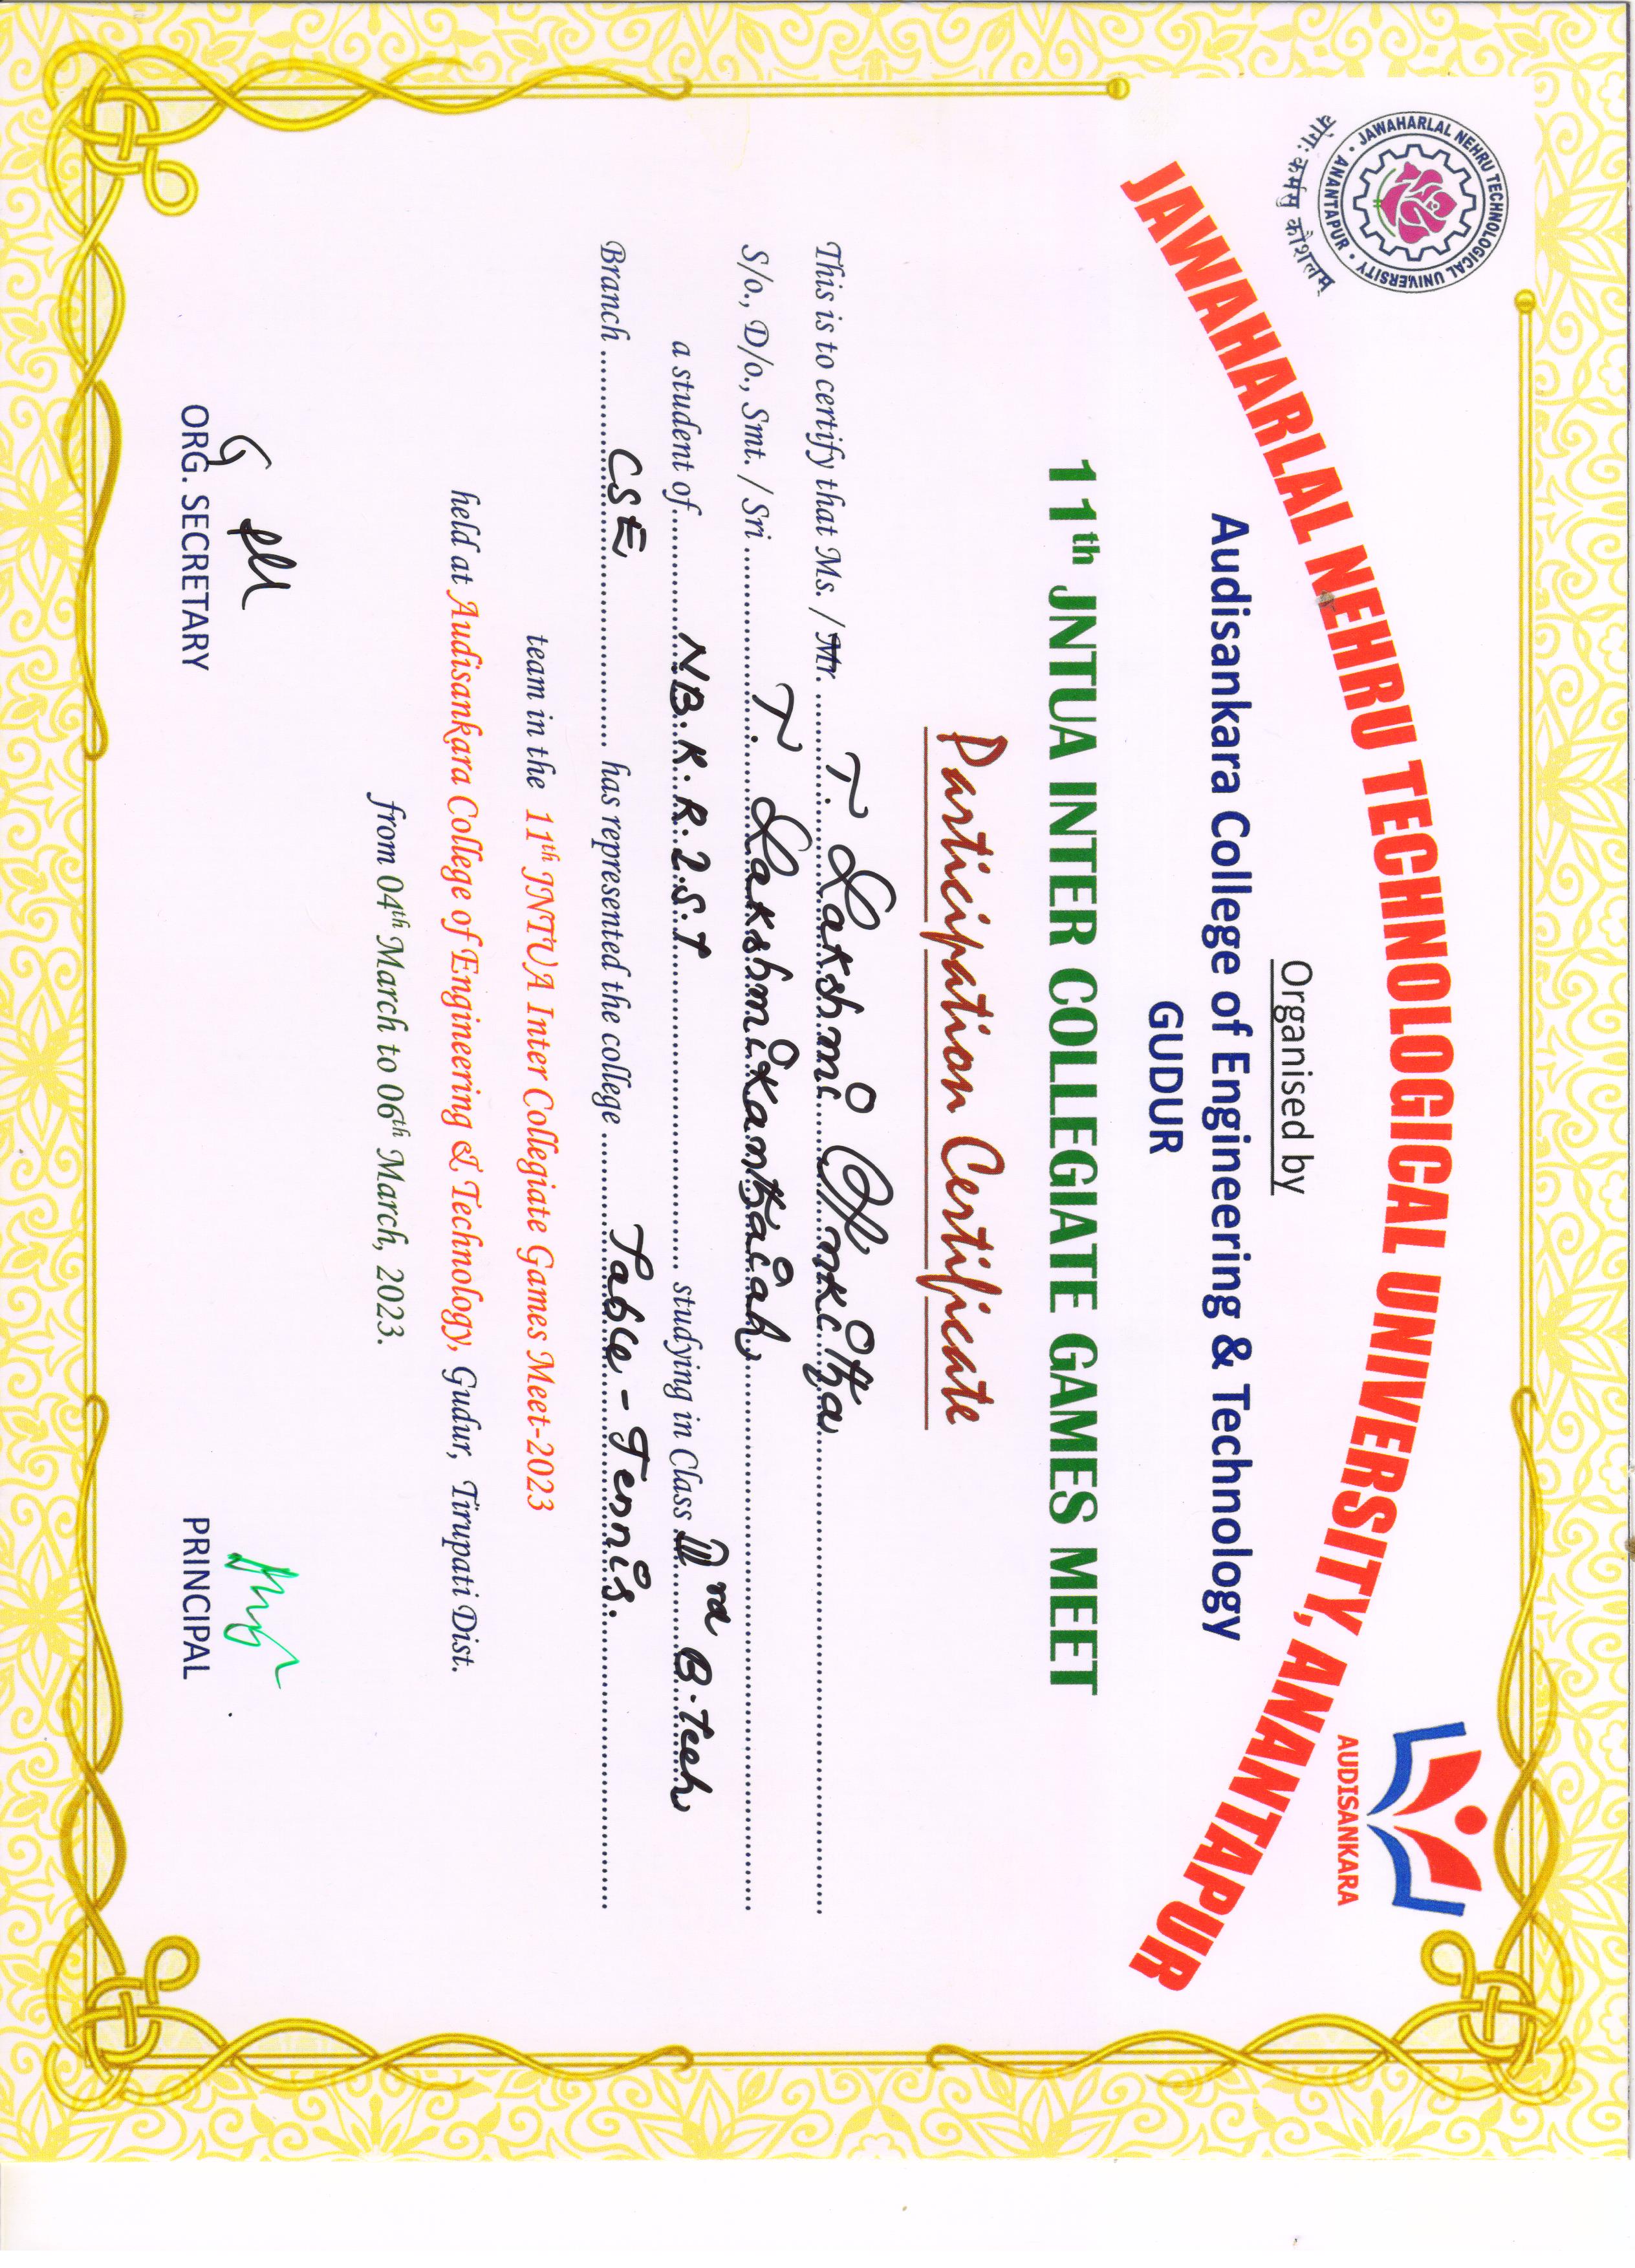 JAWAHARLAL NEHRU TECHNOLOGICAL UNIVERSITY
· ANANTAPUR ·
योगः कर्मसु कौशलम्
AUDISANKARA
JAWAHARLAL NEHRU TECHNOLOGICAL UNIVERSITY, ANANTAPUR
Organised by
Audisankara College of Engineering & Technology
GUDUR
11th JNTUA INTER COLLEGIATE GAMES MEET
Participation Certificate
This is to certify that Ms. / Mr. T. Lakshmi Ankitha
S/o., D/o., Smt. / Sri T. Lakshmikanthaiah
a student of N.B.K.R.I.S.T studying in Class rd B.Tech
Branch CSE has represented the college Table-Tennis.
team in the 11th JNTUA Inter Collegiate Games Meet-2023
held at Audisankara College of Engineering & Technology, Gudur, Tirupati Dist.
from 04th March to 06th March, 2023.
ORG. SECRETARY
PRINCIPAL